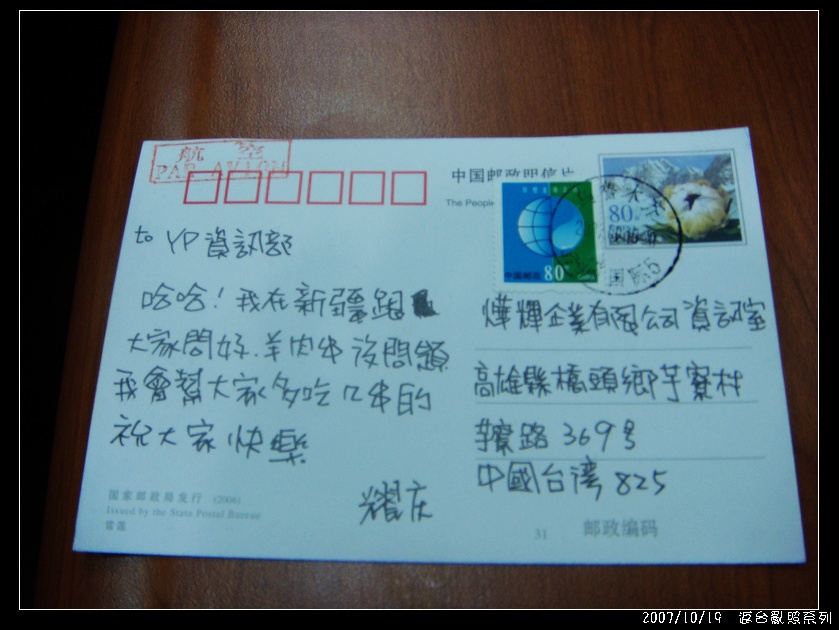 航 空
PAR AVION
中国邮政明信片
The People
80
中国邮政 80
to YP資訊部
哈哈！我在新疆跟
大家問好.羊肉串沒問題
我會幫大家多吃几串的
祝大家快樂
耀庆
燁輝企業有限公司資訊室
高雄縣橋頭鄉芋寮村
芋寮路 369号
中國台湾 825
国家邮政局发行 (2006)
Issued by the State Postal Bureau
雪莲
31
邮政编码
2007/10/19 返台亂照系列